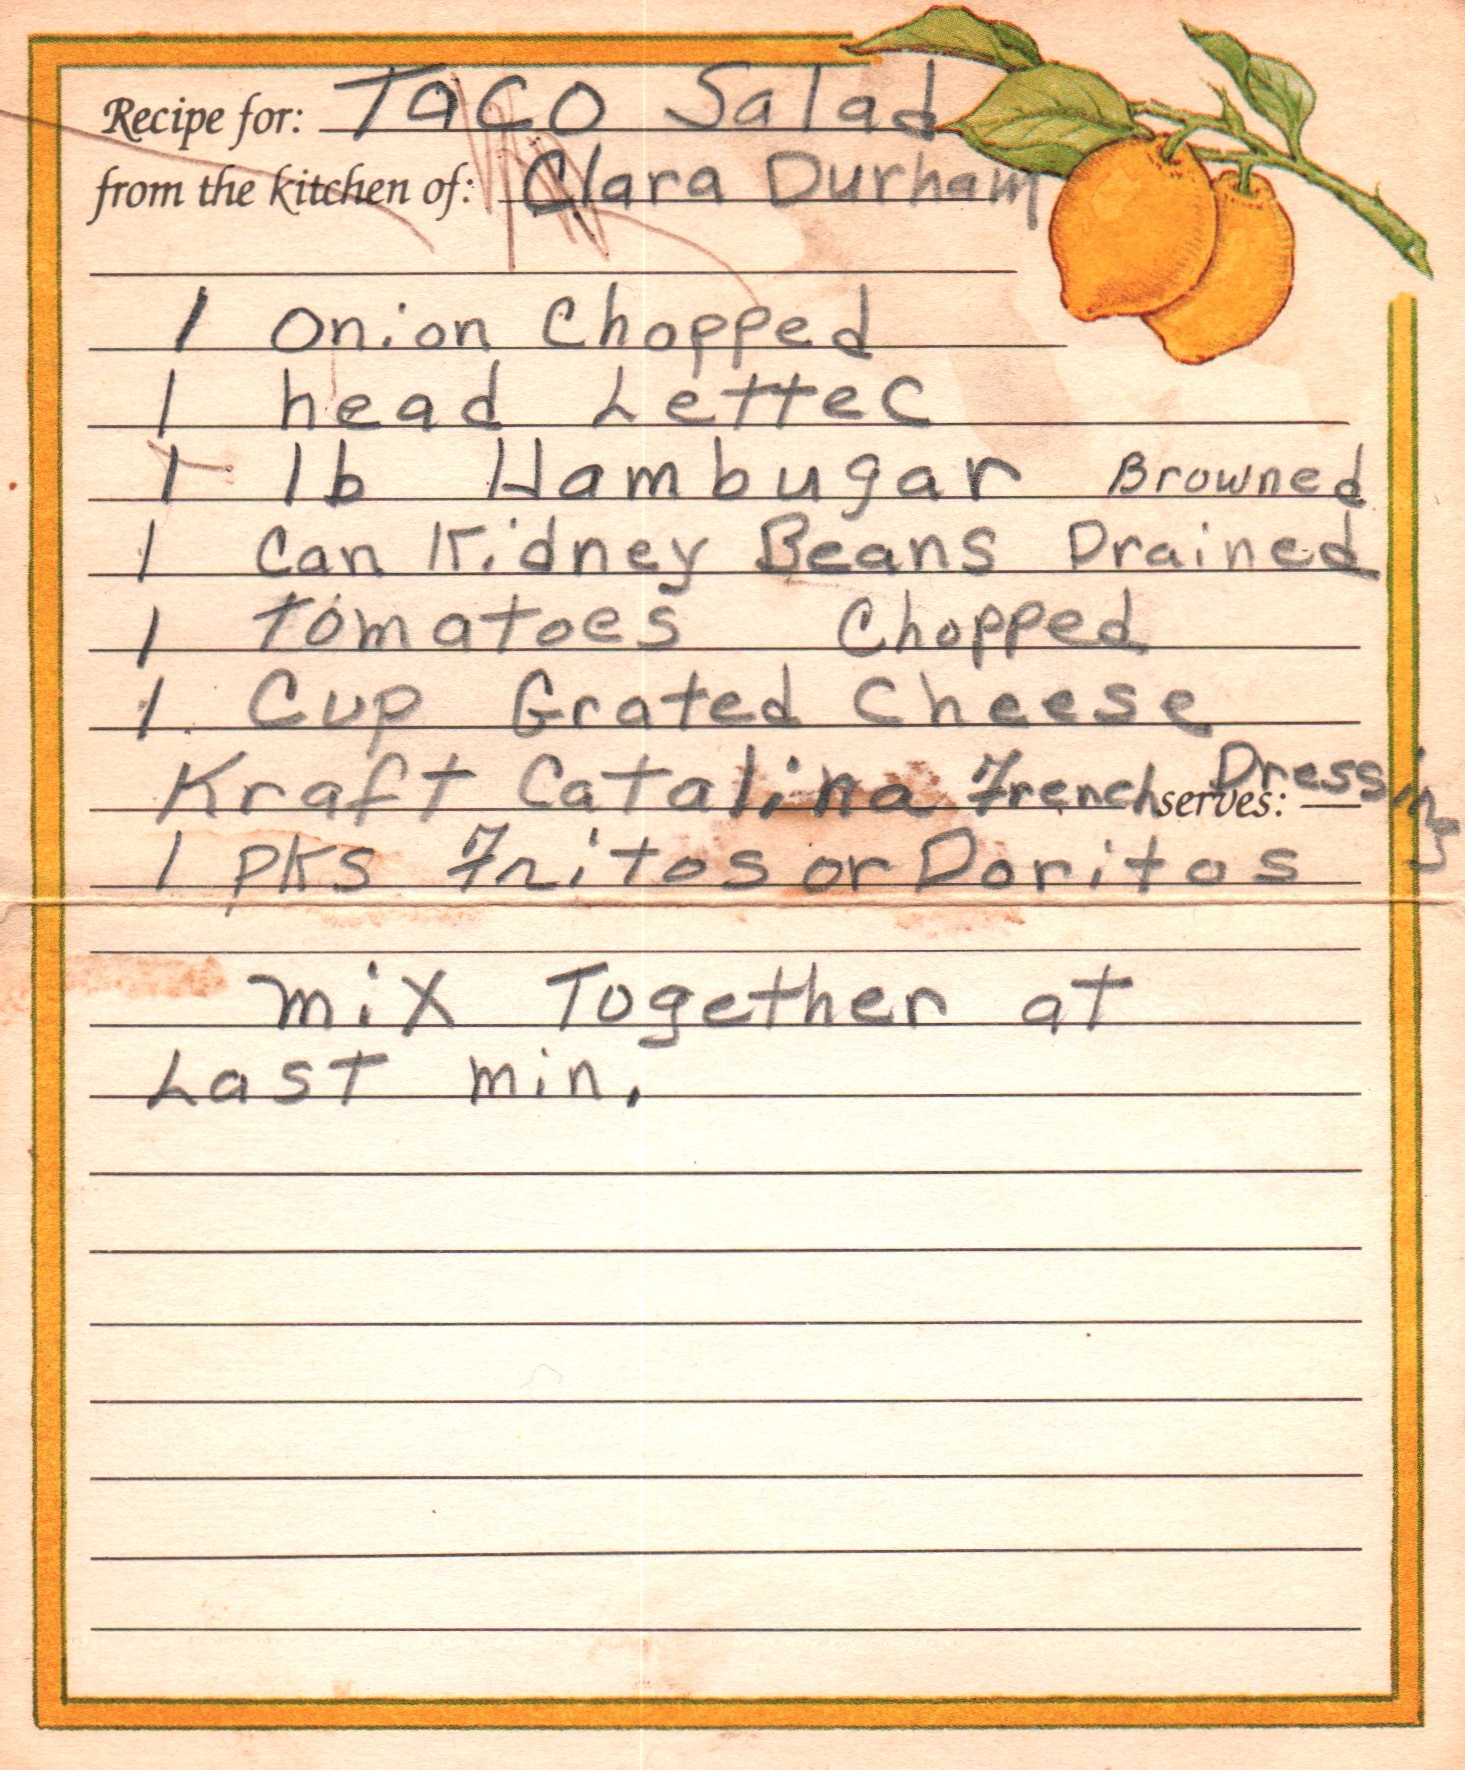 Recipe for: Taco Salad
from the kitchen of: Clara Durham
1 Onion Chopped
1 head Lettec
1 lb Hambugar Browned
1 Can Kidney Beans Drained
1 Tomatoes Chopped
1 Cup Grated Cheese
Kraft Catalina French Dressing
serves:
1 pks Fritos or Doritos
mix Together at
Last min.